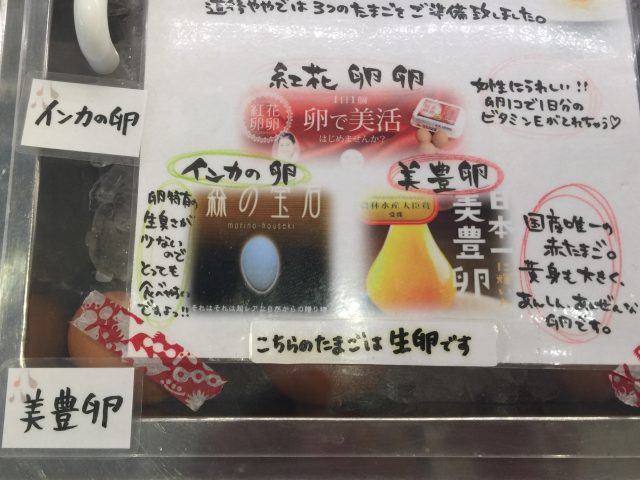 道後ややでは3つのたまごをご準備致しました。
紅花 卵 卵
女性にうれしい!!
卵1コで1日分の
ビタミンEがとれちゃう♡
紅花
卵卵
1日1個
卵で美活
はじめませんか?
インカの卵
インカの卵
卵特有の
生臭さが
少ないので
とっても
食べやすい
ですよっ!!
森の宝石
morino-houseki
それはそれは超レアな自然からの贈り物
美豊卵
農林水産大臣賞
受賞
日本一
美豊卵
国産唯一の
赤たまご。
黄身も大きく、
卵です。
こちらのたまごは生卵です
美豊卵